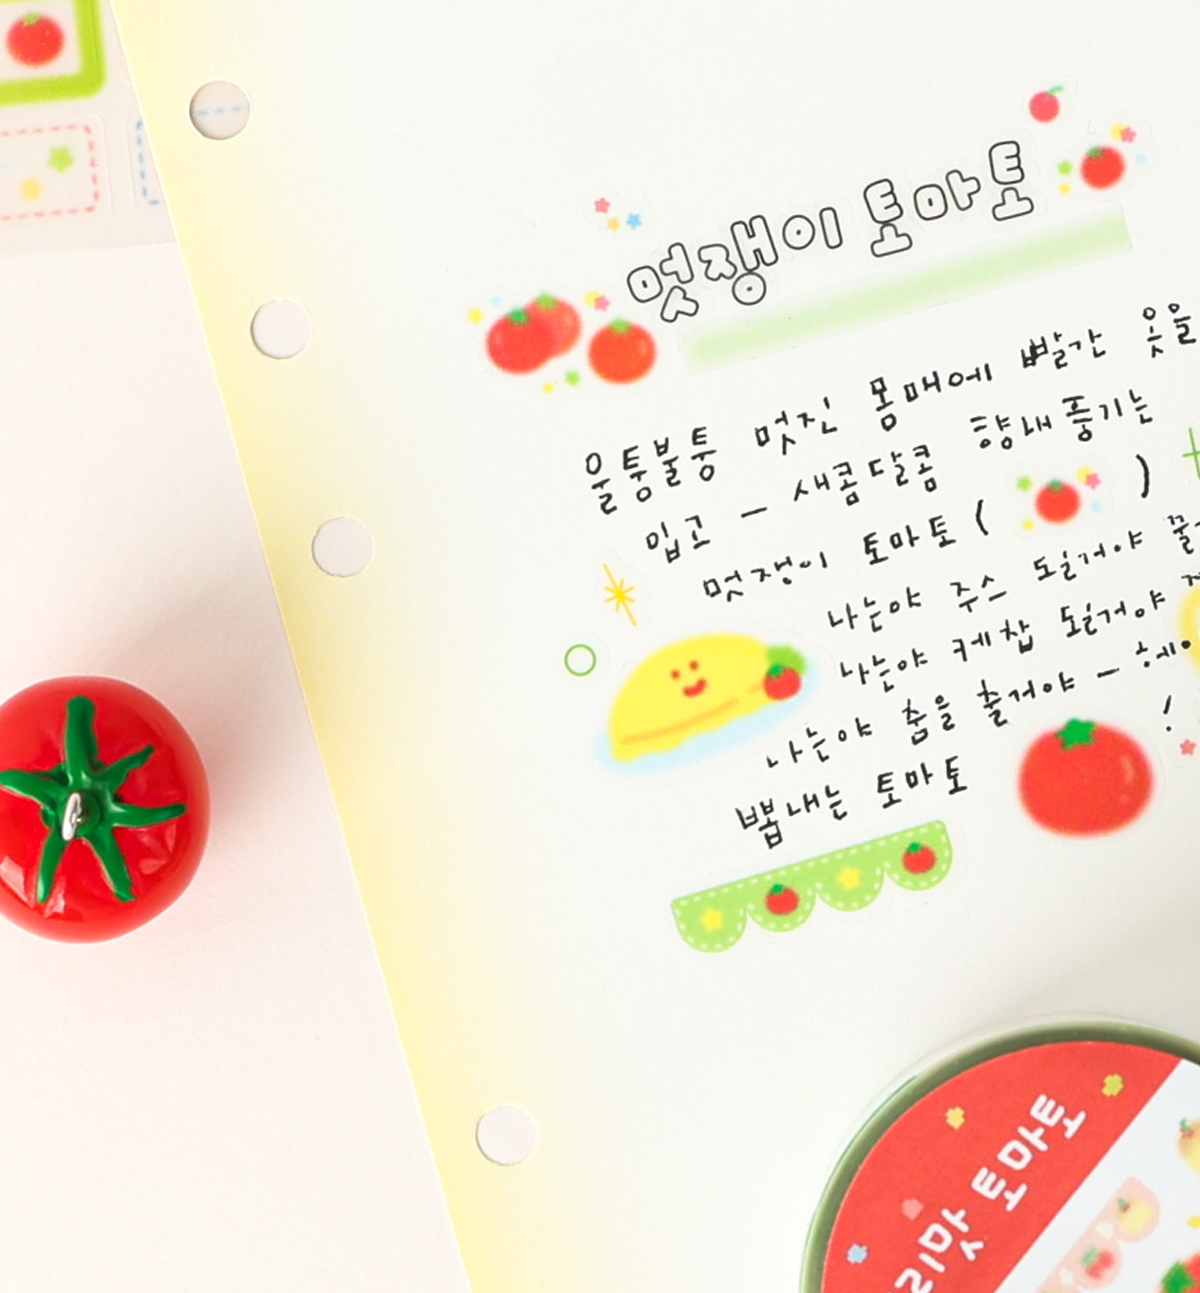 멋쟁이 토마토
울퉁불퉁 멋진 몸매에 빨간 옷을
입고 - 새콤달콤 향내풍기는
멋쟁이 토마토 ( )
나는야 주스 될거야
나는야 케찹 될거야
나는야 춤을 출거야 - 헤이
뽐내는 토마토 !
토마토